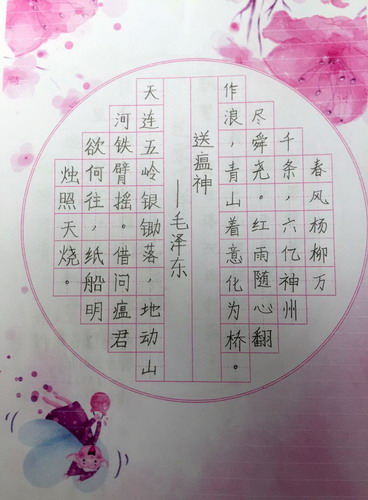 春风杨柳万
千条，六亿神州
尽舜尧。红雨随心翻
作浪，青山着意化为桥。
送瘟神
——毛泽东
天连五岭银锄落，地动山
河铁臂摇。借问瘟君
欲何往，纸船明
烛照天烧。